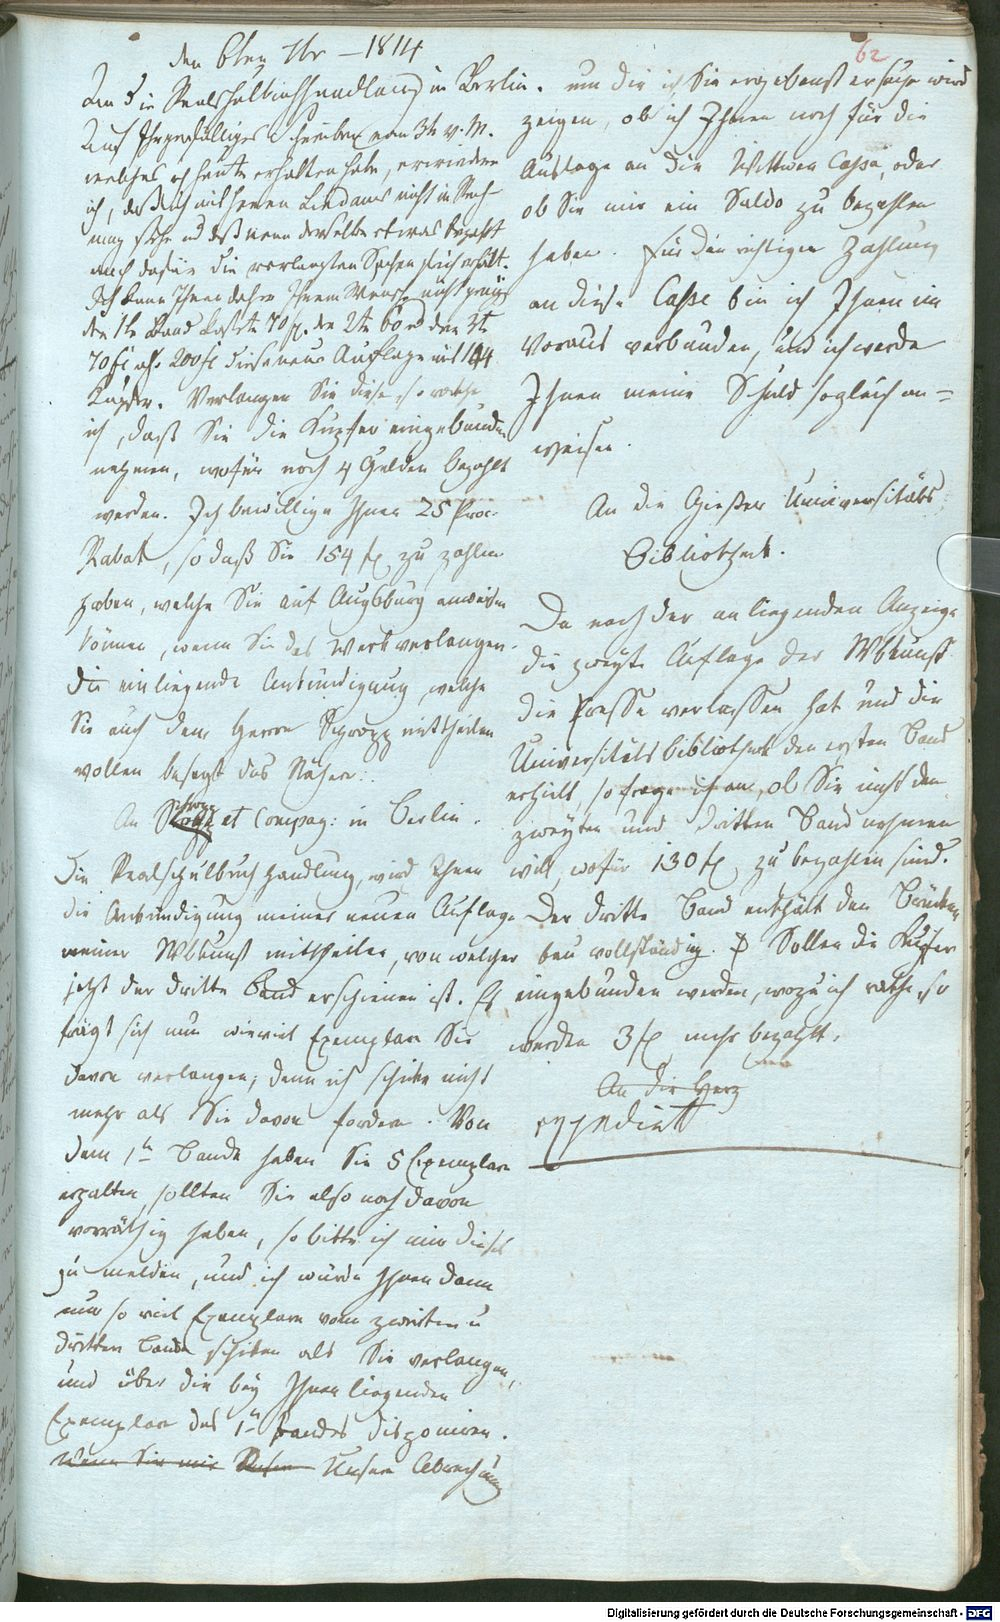 den 6ten 7br – 1814
62
An die Realschulbuchhandlung in Berlin.
Auf Ihr gefälliges Schreiben vom 3t v. M.
welches ich heute erhalten habe, erwiedere
ich, daß ich mit Herrn Lindauer nicht in Rech-
nung stehe und daß wenn derselbe etwas bezahlt
auch dafür die verlangten Sachen gleich erhält.
Ich kann Ihnen daher Ihrem Wunsche nicht
der 1te Band kostete 70 f, der 2te 60 und der 3te
70 fl also 200 fl diese neue Auflage mit 144
Kupfer. Verlangen Sie diese, so rathe
ich, daß Sie die Kupfer eingebunden
nehmen, wofür noch 4 Gulden bezahlt
werden. Ich bewillige Ihnen 25 Proc:
Rabat, so daß Sie 154 f zu zahlen
haben, welche Sie auf Augsburg anweisen
können, wenn Sie das Werk verlangen.
Die einliegende Ankündigung, welche
Sie auch dem Herrn Schropp mittheilen
wollen besagt das Nähere.
An Schropp et Compag: in Berlin.
Die Realschulbuchhandlung, wird Ihnen
die Ankündigung meiner neuen Auflage
meiner Wbkunst mittheilen, von welcher
jetzt der dritte Band erschienen ist. Es
frägt sich nun wieviel Exemplare Sie
davon verlangen; denn ich schicke nicht
mehr als Sie davon fordern. Von
dem 1n Bande haben Sie 5 Exemplare
erhalten, sollten Sie also noch davon
vorräthig haben, so bitte ich mir dieses
zu melden, und ich würde Ihnen dann
nur so viel Exemplare vom zweiten u
dritten Bande schicken als Sie verlangen,
und über die bey Ihnen liegenden
Exemplare des 1n Bandes disponiren.
Wenn Sie mir Unsere Abrechnung
um die ich Sie ergebenst ersuche wird
zeigen, ob ich Ihnen noch für die
Auslage an die Wittwen Casse, oder
ob Sie mir ein Saldo zu bezahlen
haben. Für die richtige Zahlung
an diese Casse bin ich Ihnen im
Voraus verbunden, und ich werde
Ihnen meine Schuld sogleich an-
weisen.
An die Gießer Universitäts
Bibliothek.
Da nach der anliegenden Anzeige
die zweyte Auflage der Wbkunst
die Presse verlassen hat und die
Universitäts bibliothek den ersten Band
erhielt, so frage ich an, ob Sie nicht den
zweyten und dritten Band nehmen
will, wofür 130 f zu bezahlen sind.
Der dritte Band enthält den Brücken
bau vollständig. Sollen die Kupfer
eingebunden werden, wozu ich rathe, so
werden 3 f mehr bezahlt.
An die Herz
expedirt
Digitalisierung gefördert durch die Deutsche Forschungsgemeinschaft - DFG